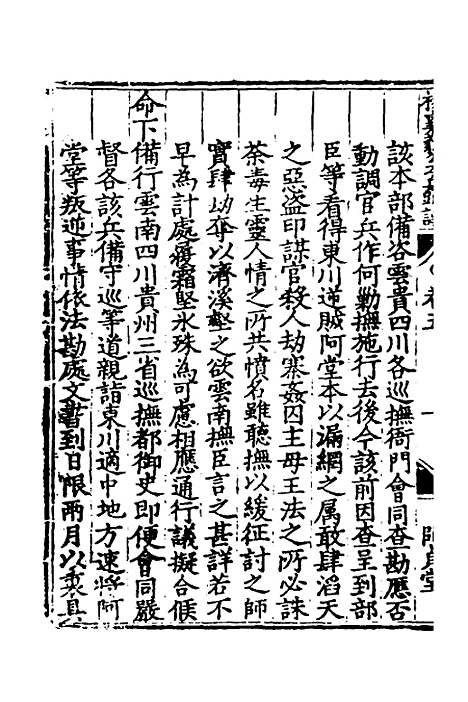 該本部備咨雲貴四川各巡撫衙門會同查勘應否
動調官兵作何勦撫施行去後今該前因查呈到部
臣等看得東川逆賊阿堂本以漏網之属敢肆滔天
之惡盗印謀官殺人劫寨姦囚主母王法之所必誅
荼毒生靈人情之所共憤名雖聽撫以緩征討之師
實肆劫奪以濟溪壑之欲雲南撫臣言之甚詳若不
早為計處履霜堅氷殊為可慮相應通行議擬合候
命下備行雲南四川貴州三省巡撫都御史即便會同嚴
督各該兵備守巡等道親詣東川適中地方速將阿
堂等叛逆事情依法勘處文書到日限兩月以裏具
卷五
一